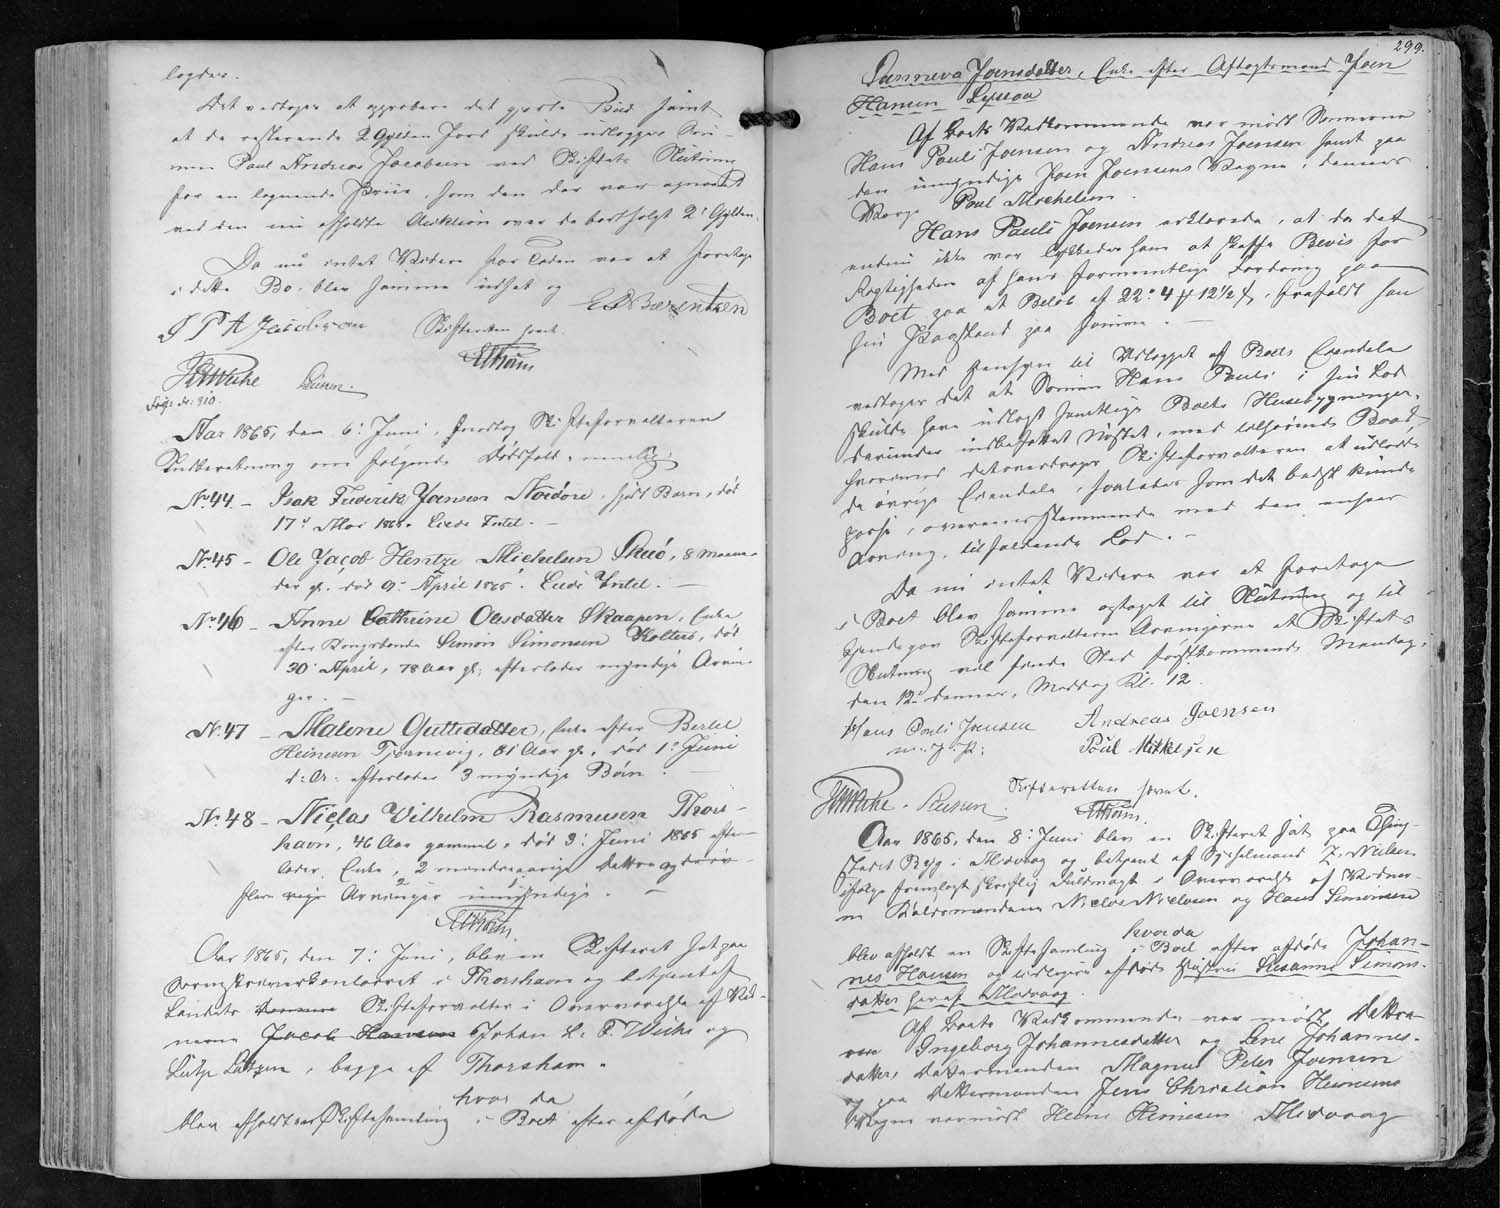 logder.
Det vedtoges at approbere det gjorte Bud samt
at de resterende 2 Gylden Jord skulde udlægges Søn-
nen Paul Andreas Jacobsen ved Skiftets Slutning
for en lignende Priis, som den der var opnaaet
ved den nu afholdte Auktion over de bortsolgte 2 Gylden.
Da nu intet Videre for Tiden var at foretage
i dette Bo, blev samme udsat og
E S Bærentsen
P A Jacobsen Skifteretten hævet.
HWeihe
Aar 1865, den 6: Juni, modtog Skifteforvalteren
Indberetning om følgende Dødsfald, nemlig:
No 44 – Isak Frederik Joensen Nordøre, født Barn, død
17de Mai 1865. Eiede Intet. –
No 45 – Ole Jacob Hentze Michelsen Skuø, 8 Maane-
der gl. død 9: April 1865. Eiede Intet. –
No 46 – Anne Cathrine Olesdatter Skaapen, Enke
efter Kongsbonde Simon Simonsen Kolter, død
30: April, 78 Aar gl. efterlader myndige Arvin-
ger. –
No 47 – Malene Guttesdatter, Enke efter Bertel
Heinesen Tjørnevig, 81 Aar gl., død 1: Juni
d: A: efterlader 3 myndige Børn. –
No 48 – Niclas Vilhelm Rasmussen Thors-
havn, 46 Aar gammel, død 3: Juni 1865 efter-
lader Enke, 2 Døttre og
Arvinger umyndige.
Aar 1865, den 7: Juni, blev en Skifteret sat paa
Sorenskriverkontoret i Thorshavn og betjent af
Landets Skifteforvalter i Overværelse af Vid-
nerne Jacob Hansen Johan H. P. Weihe og
Lützen, begge af Thorshavn.
hvor da
blev afholdt Skiftesamling i Boet efter afdøde
299.
Sunneva Joensdatter, Enke efter Aftægtsmand Joen
Hansen
Af Boets Vedkommende var mødt Sønnerne
Hans Pauli Joensen og Andreas Joensen samt paa
den umyndige Joen Joensens Vegne, dennes
Værge Poul Michelsen.
Hans Pauli Joensen erklærede, at da det
endnu ikke var lykkedes ham at skaffe Beviis for
Rigtigheden af hans formeentlige Fordring paa
Boet paa et Beløb af 22 4 12½, frafaldt han
sin Paastand paa samme. –
Med Hensyn til Udlægget af Boets Eiendele
vedtoges det at Sønnen Hans Pauli i sin Lod
skulde have udlagt samtlige Boets Huusebygninger,
derunder indbefattet Nøstet, med tilhørende Baad,
hvorimod det overdroges Skifteforvalteren at udlodde
de øvrige Eiendele, saaledes som det bedst kunde
passe, overeensstemmende med den enhver
Arving tilfaldende Lod. –
Da nu intet Videre var at foretage
i Boet blev samme optaget til Slutning og til
kjendegav Skifteforvalteren Arvingerne at Skiftets
Slutning vil finde Sted førstkommende Mandag,
den 12te dennes, Middag Kl. 12.
Hans Pauli Joensen Andreas Joensen
m. f. P. Poul Mikkelsen
Skifteretten hævet.
HWeihe
Aar 1865, den 8: Juni blev en Skifteret sat paa Thing-
stedet Ryg i Midvaag og betjent af Sysselmand Z. Nielsen
ifølge fremlagt skriftlig Fuldmagt i Overværelse af Vidner-
ne Niclas Nielsen og Hans Simonsen
hvorda
blev afholdt en Skiftesamling i Boet efter afdøde Johan-
nes Hansen og tidligere afdøde Hustru Susanne Simons-
datter her af Midvaag.
Af Boets Vedkommende var mødt Døttre-
ne Ingeborg Johannesdatter og Lene Johannes-
datter, Dattermanden Magnus Peter Joensen
og paa Dattermanden Jens Christian Heinesens
Vegne var mødt Heine Heinesen Midvaag